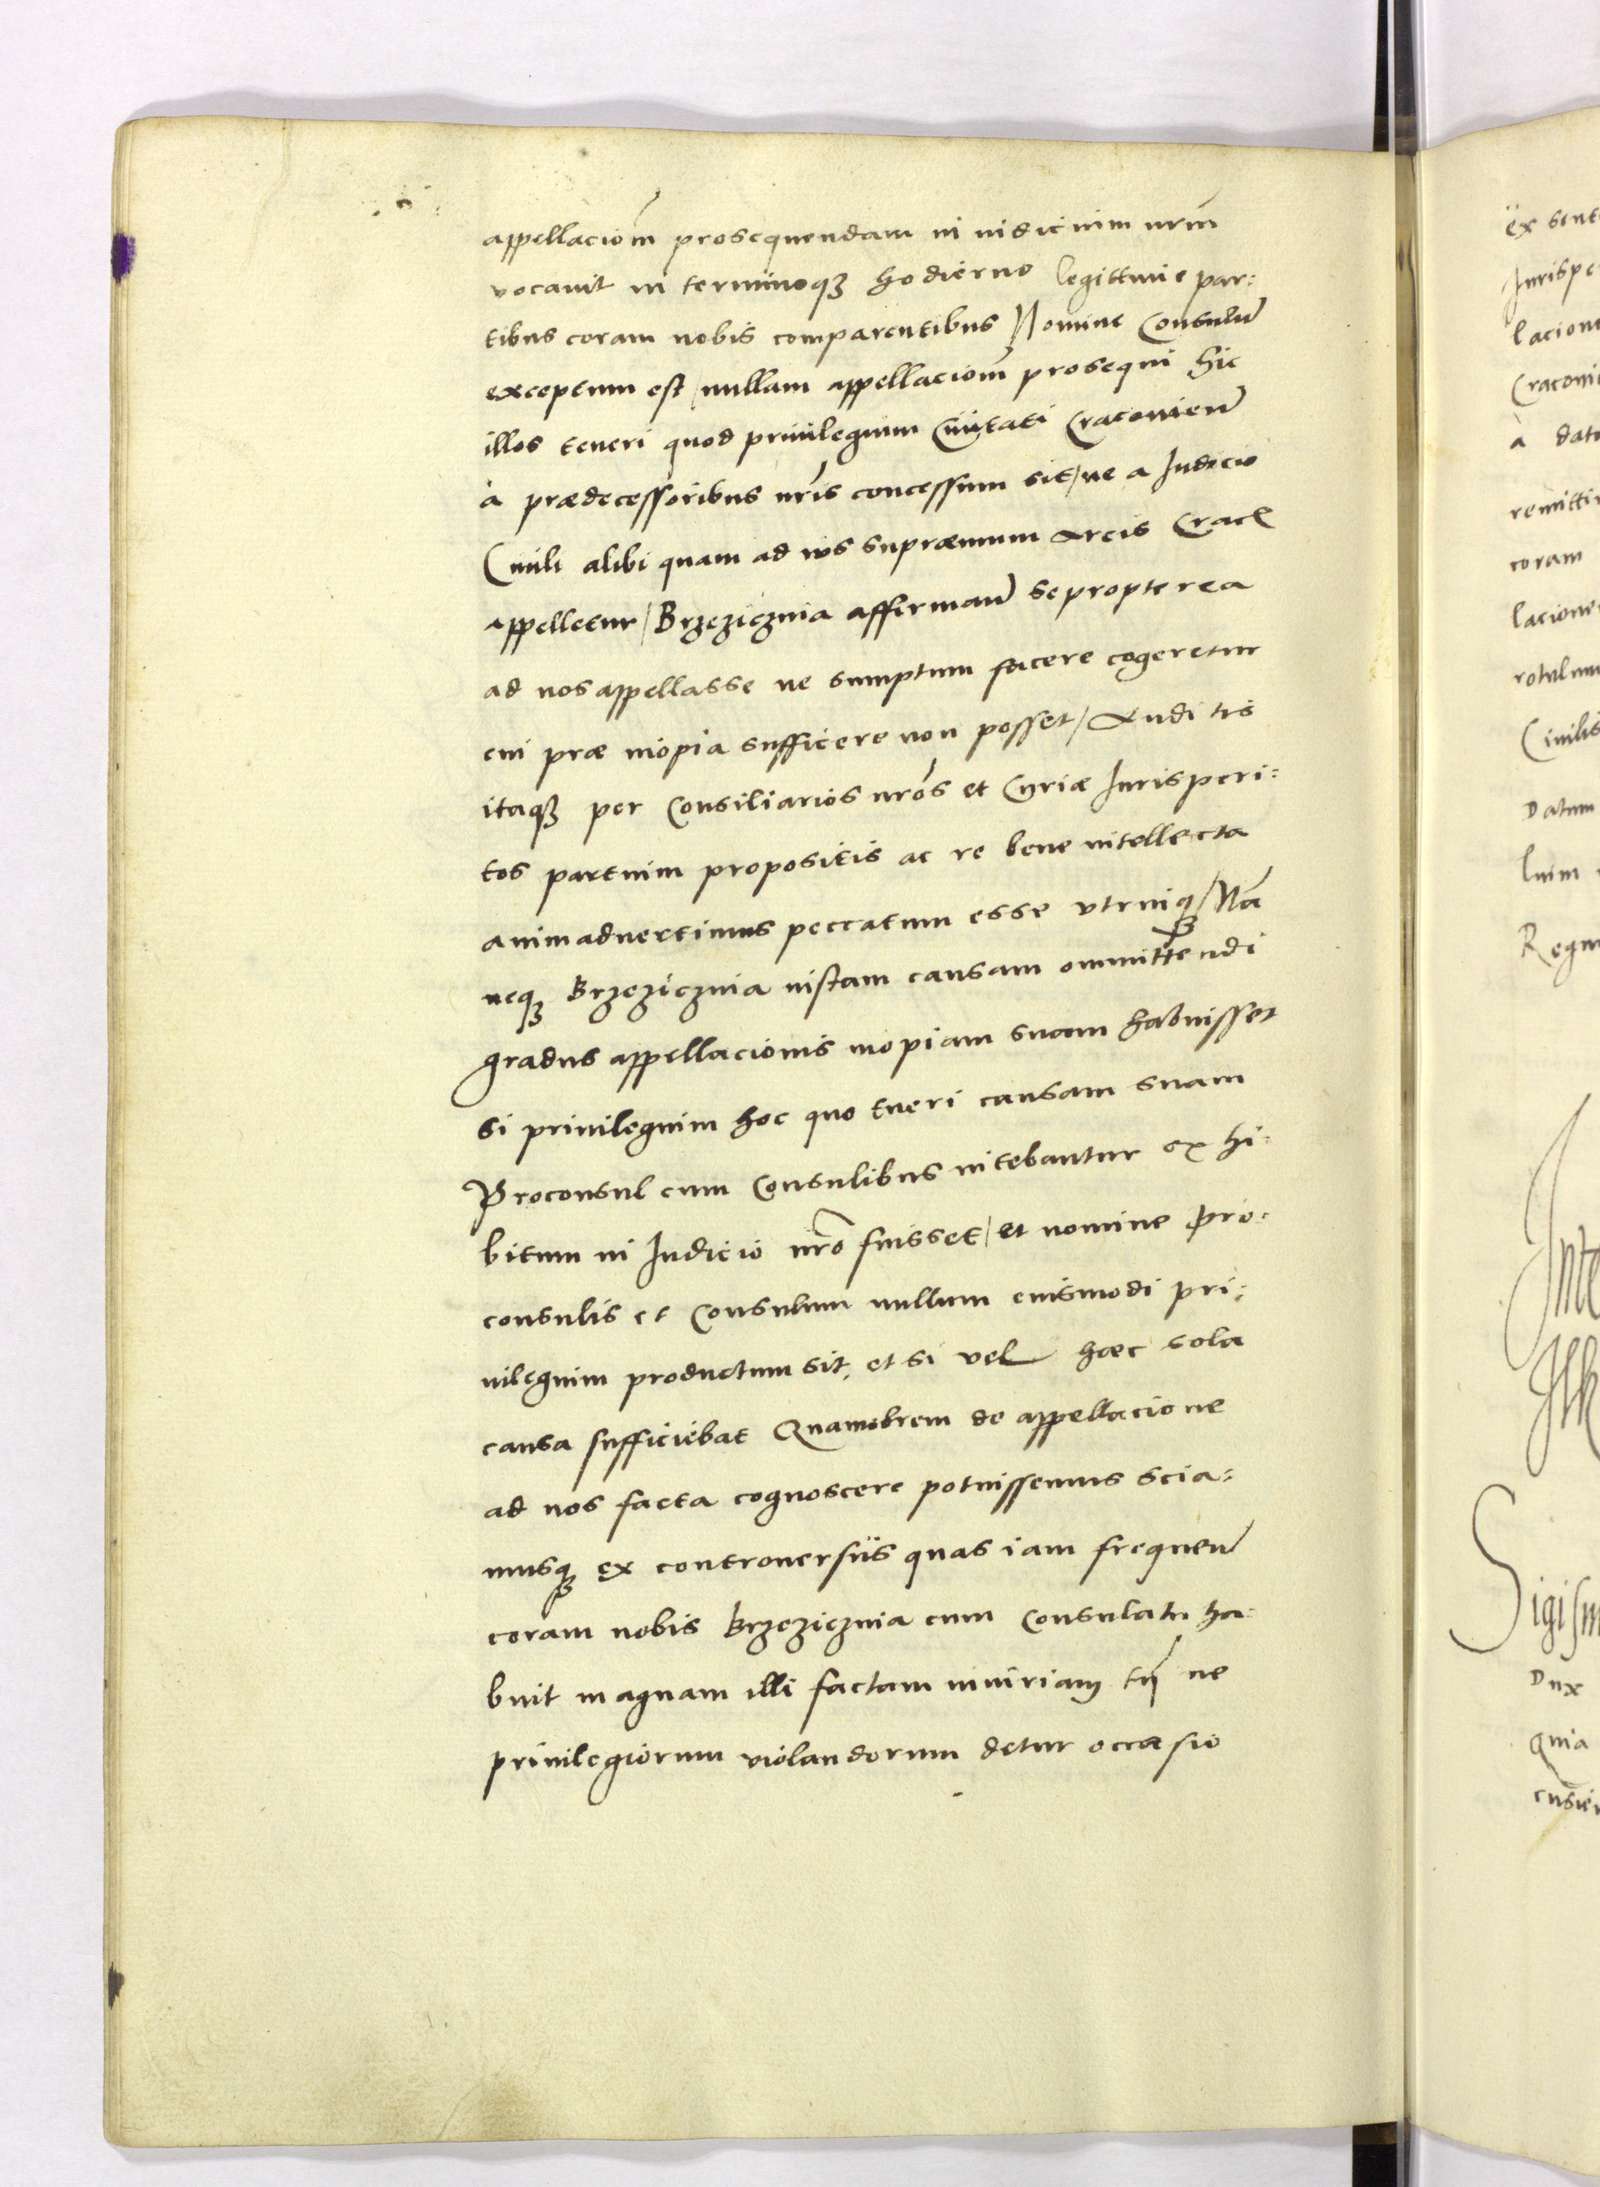 appellacioñ prosequendam in iudicium nrm̃
vocavit in terminoqȝ hodierno legittimie par:
tibus coram nobis comparentibus Nomine Consulũ
exceptum est / nullam appellacioñ prosequi hic
illos teneri quod privilegium Civitati Cracovieñ
à prædecessoribus nr̃is concessum sit / ne a Judicio
Civili alibi quam ad ius supræmum Arcis Crac
appelletur / Brzezicznia affirmañ se propterea
ad nos appellasse ne sumptum facere cogeretur
cui præ inopia sufficere non posset / Auditis
itaqȝ per Consiliarios nr̃os et Curiæ Jurisperi:
tos partium propositis ac re bene intellecta
animadvertimus peccatum esse utrinqȝ / Nã
neqȝ Brzezicznia iustam causam ommittendi
gradus appellacionis inopiam suam habuisset
si privilegium hoc quo tueri causam suam
Proconsul cum Consulibus nitebantur exhi:
bitum in Judicio nr̃o fuisset / et nomine pro:
consulis et Consulum nullum eiusmodi pri:
vilegium productum sit, et si vel hæc sola
causa sufficiebat Quamobrem de appellacione
ad nos facta cognoscere potuissemus scia:
musqȝ ex controversiis quas iam frequeñ
coram nobis Brzezicznia cum Consulatu ha:
buit magnam illi factam iniuriam tñ ne
privilegiorum violandorum detur occasio
ex sent
Jurispe
lacion
Cracovi
à dat
remitti
coram
lacione
rotulum
Civilis
Datum
luim
Regni
Inte
Ilk
Sigism
Dux
quia
cusie